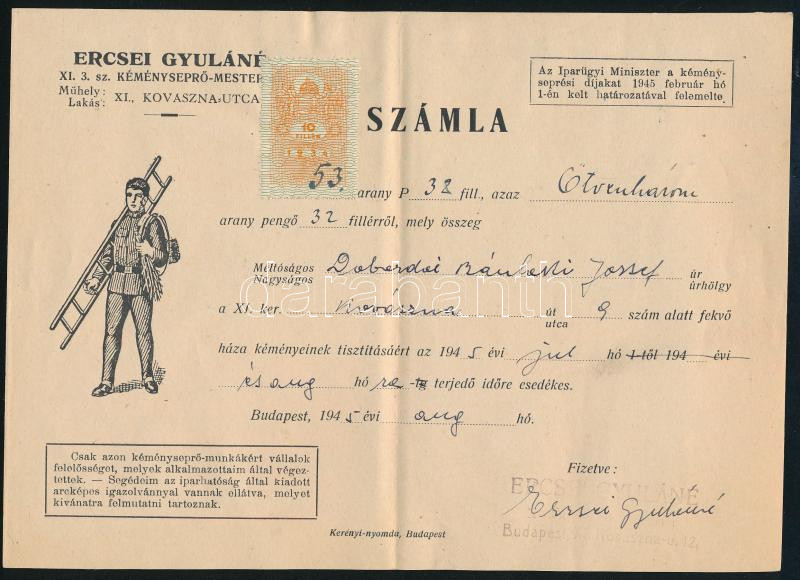 ERCSEI GYULÁNÉ
XI. 3. sz. KÉMÉNYSEPRŐ-MESTER
Műhely:
Lakás:
XI., KOVASZNA-UTCA
10
FILLÉR
1934
Az Iparügyi Miniszter a kémény-
seprési díjakat 1945 február hó
1-én kelt határozatával felemelte.
SZÁMLA
53. arany P 32 fill., azaz Ötvenhárom
arany pengő 32 fillérről, mely összeg
Méltóságos
Nagyságos
Doberdói József
úr
úrhölgy
a XI. ker. Kovászna út
utca
9 szám alatt fekvő
háza kéményeinek tisztításáért az 1945 évi jul hó 1-től 194 évi
és aug hó -ig terjedő időre esedékes.
Budapest, 1945 évi aug hó.
Csak azon kéményseprő-munkákért vállalok
felelősséget, melyek alkalmazottaim által végez-
tettek. — Segédeim az iparhatóság által kiadott
arcképes igazolvánnyal vannak ellátva, melyet
kívánatra felmutatni tartoznak.
Fizetve:
ERCSEI GYULÁNÉ
Ercsei Gyuláné
Budapest, XI. Kovászna-u. 12.
Kerényi-nyomda, Budapest
darabanth.com